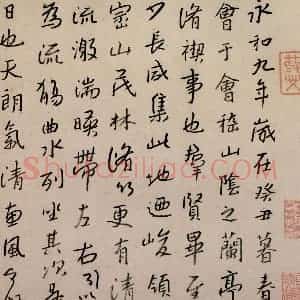 永和九年歲在癸丑暮春
會于會稽山陰之蘭亭
脩禊事也羣賢畢至
少長咸集此地迺峻領
崇山茂林脩竹更有清
流激湍暎帶左右引以
為流觴曲水列坐其次是
日也天朗氣清惠風